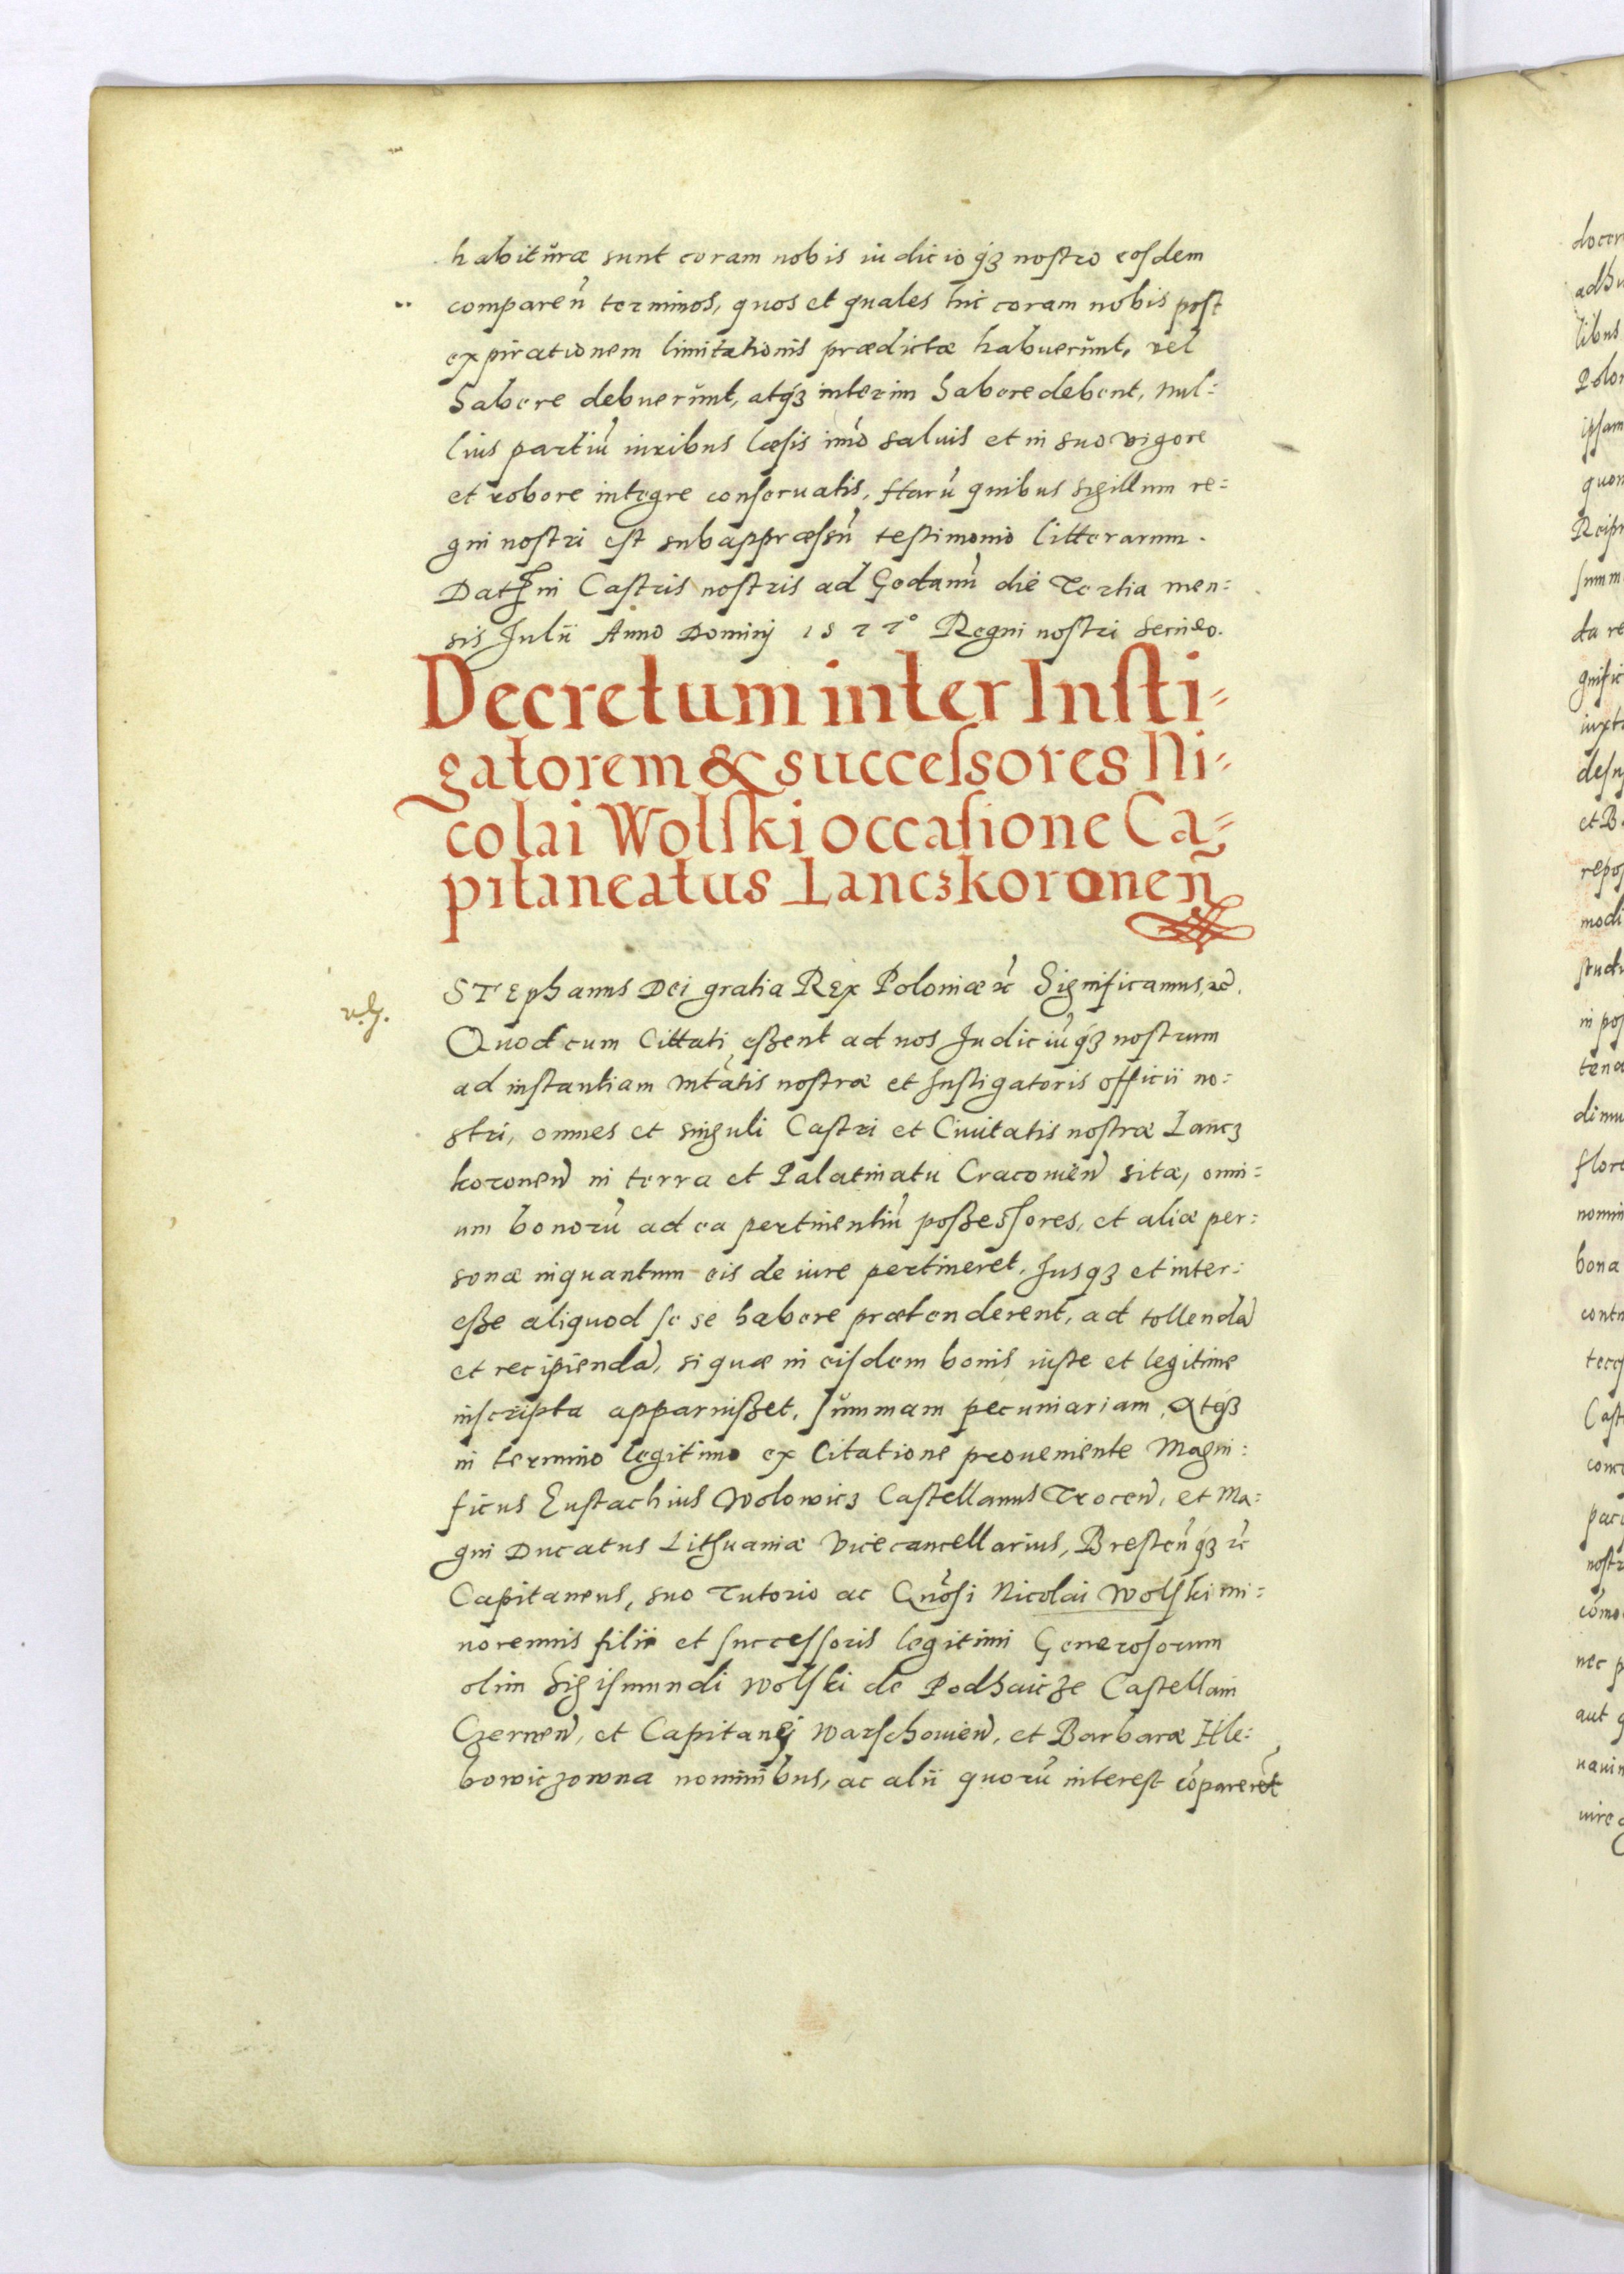 habituræ sunt coram nobis iudicioq́ꝫ nostro eosdem
compareñ terminos, quos et quales hic coram nobis post
expirationem limitationis prædictæ habuerunt, vel
habere debuerunt, atq́ꝫ interim habere debent, nul=
lius partiũ iuribus læsis imò saluis et in suo vigore
et robore integre conseruatis, Harũ quibus Sigillum re=
gni nostri est subappræssũ testimonio litterarum.
Datꝭ in Castris nostris ad Gedanũ die Tertia men=
sis Julii Anno Dominj 1577° Regni nostri Secũdo.
Decretum inter Insti=
gatorem & successores Ni=
colai Wolski occasione Ca=
pitaneatus Lanczkoronen̄
STEphanus Dei gratia REX Poloniæ ⁊c̃ Significamus, ⁊c̃.
Quod cum Cittati essent ad nos Judiciũq́ꝫ nostrum
ad instantiam Mtãtis nostræ et Instigatoris officii no=
stri, omnes et singuli Castri et Ciuitatis nostræ Lancz
koronen̄ in terra et Palatinatu Cracouien̄ sitæ, omni=
um bonorũ ad ea pertinentiũ possessores, et aliæ per=
sonæ inquantum eis de iure pertineret, Jusqꝫ et inter=
esse aliquod se se habere prætenderent, ad tollendã
et recipiendã, si quæ in eisdem bonis iuste et legitime
inscripta apparuisset, summam pecuniariam, Atq́ꝫ
in termino legitimo ex Citatione proueniente Magni=
ficus Eustachius Wolowicz Castellanus Trocen̄, et Ma=
gni Ducatus Lithuaniæ Vicecancellarius, Bresten̄q́ꝫ ⁊c̃
Capitaneus, suo Tutorio ac Gn̄osi Nicolai Wolski mi=
norennis filii et successoris legitimi Generosorum
olim Sigismundi Wolski de Podhaicze Castellani
Czernen̄, et Capitanej Warschouien̄, et Barbaræ Hle=
bowiczowna nominibus, ac alii quorũ interest cõparerẽt